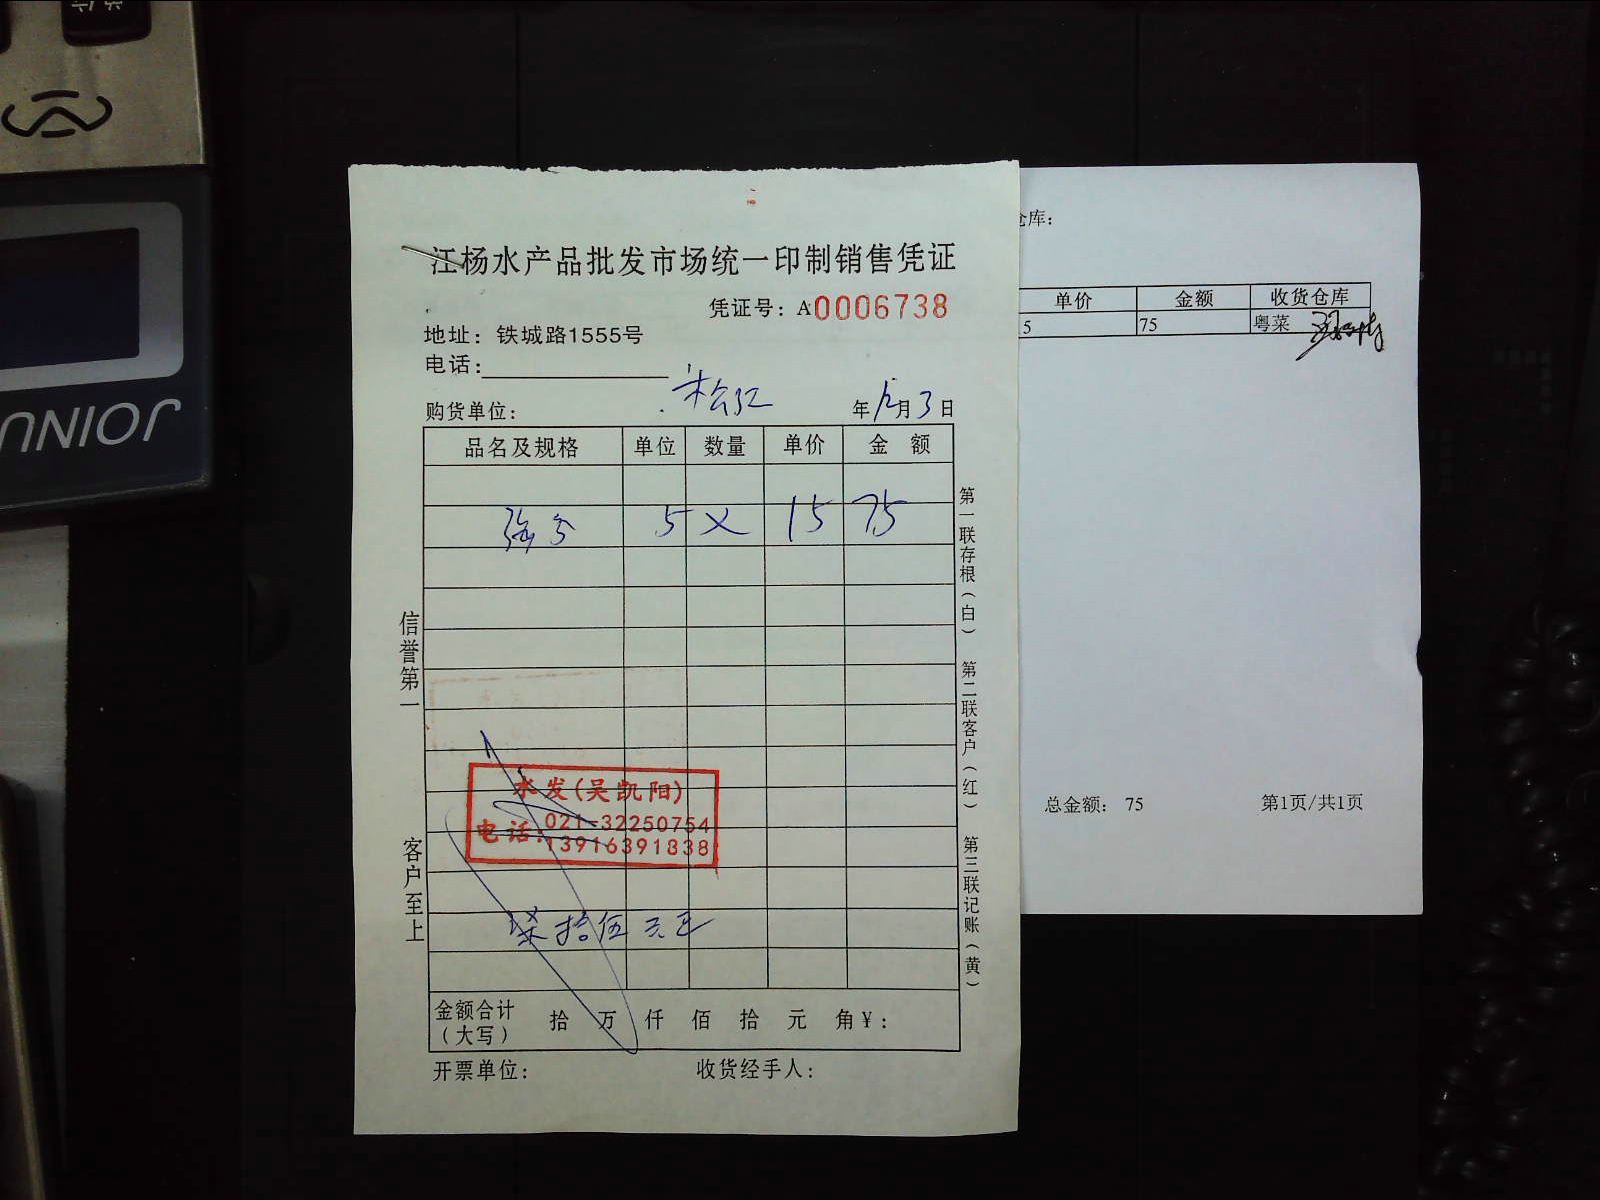 江杨水产品批发市场统一印制销售凭证
凭证号：A0006738
地址：铁城路1555号
电话：
购货单位： 松江 年 12月 3日
品名及规格 单位 数量 单价 金额
5 15 75
信誉第一
客户至上
第一联存根（白） 第二联客户（红） 第三联记账（黄）
水发(吴凯阳)
电话：021-32250754
13916391838
柒拾伍元正
金额合计
（大写） 拾 万 仟 佰 拾 元 角 ¥：
开票单位： 收货经手人：
仓库：
单价 金额 收货仓库
5 75 粤菜
总金额： 75 第1页/共1页
JOINU